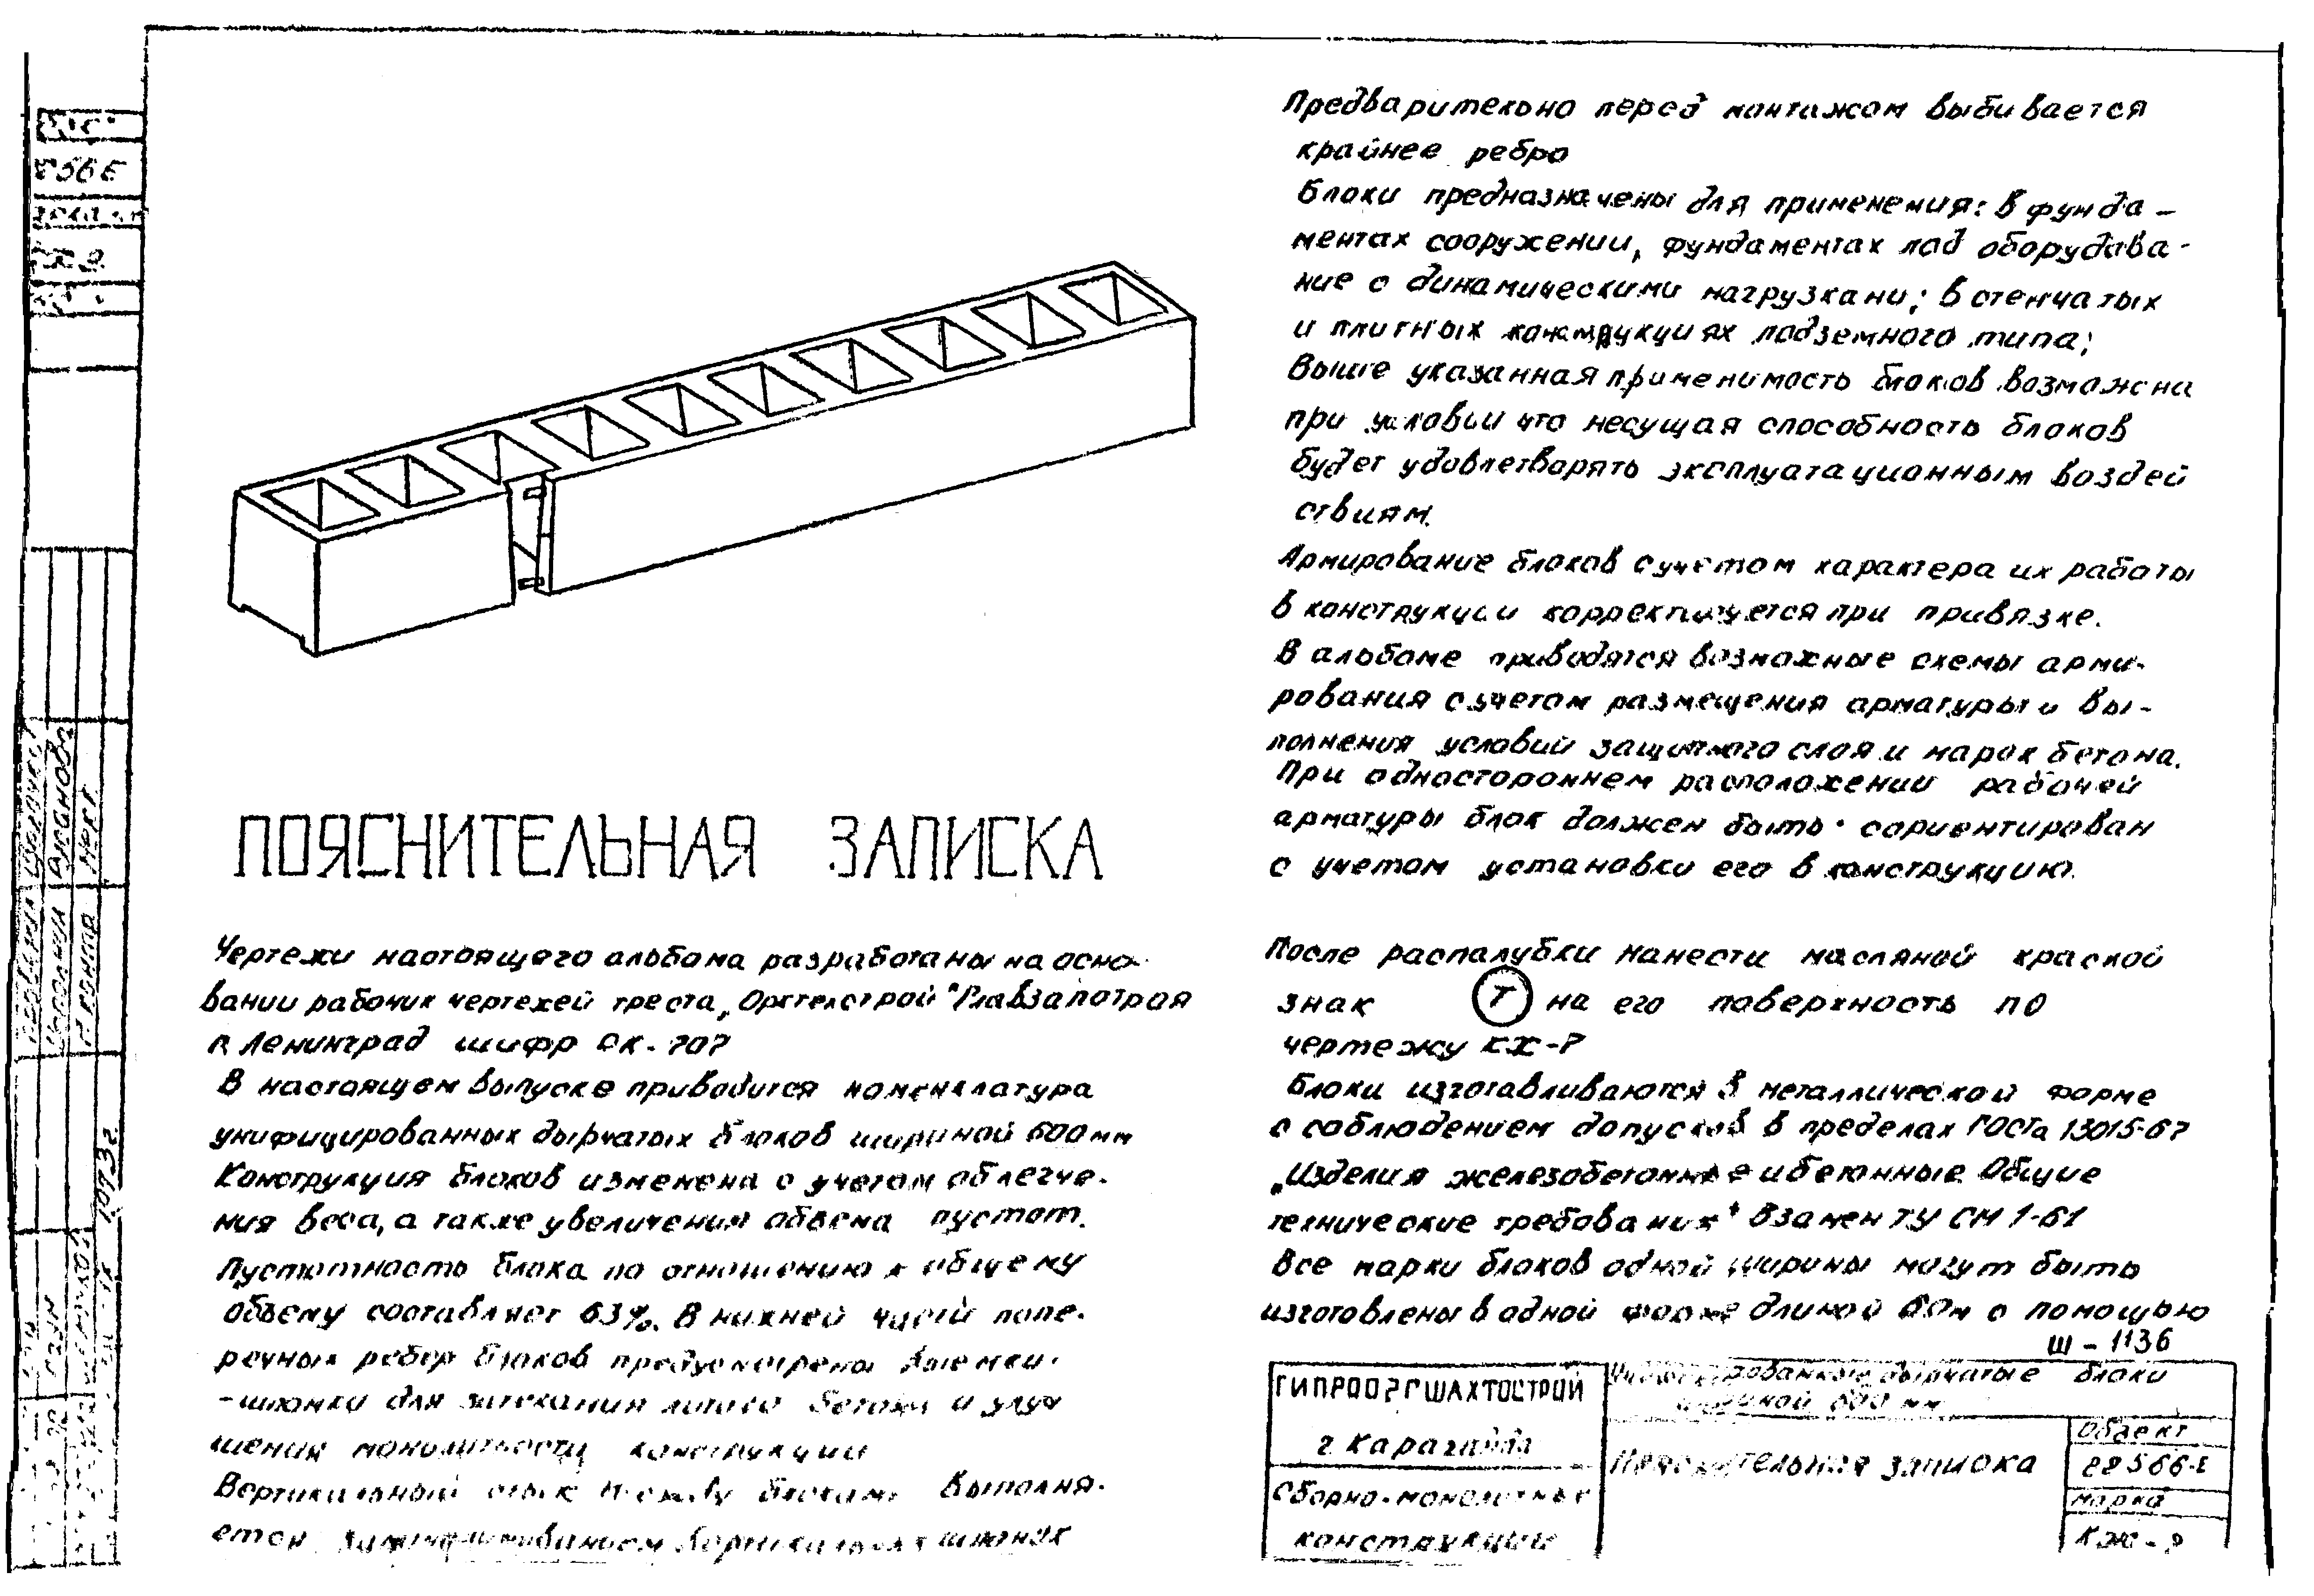 ПОЯСНИТЕЛЬНАЯ ЗАПИСКА
Чертежи настоящего альбома разработаны на осно-
вании рабочих чертежей треста „Оргтехстрой" Главзапстроя
г. Ленинград шифр ОК-707
В настоящем выпуске приводится номенклатура
унифицированных дырчатых блоков шириной 600 мм
Конструкция блоков изменена с учетом облегче-
ния веса, а также увеличения объема пустот.
Пустотность блока по отношению к общему
объему составляет 63%. В нижней части попе-
речных ребер блоков предусмотрены выемки-
-шпонки для затекания литого бетона и улуч
шения монолитности конструкции
Вертикальный стык между блоками выполня-
ется вертикальных шпонок
Предварительно перед монтажом выбивается
крайнее ребро
Блоки предназначены для применения: в фунда-
ментах сооружении, фундаментах под оборудова-
ние с динамическими нагрузками; в стенчатых
и плитных конструкциях подземного типа;
Выше указанная применимость блоков возможна
при условии что несущая способность блоков
будет удовлетворять эксплуатационным воздей
ствиям.
Армирование блоков с учетом характера их работы
в конструкции корректируется при привязке.
В альбоме приводятся возможные схемы арми-
рования с учетом размещения арматуры и вы-
полнения условий защитного слоя и марок бетона.
При одностороннем расположении рабочей
арматуры блок должен быть сориентирован
с учетом установки его в конструкцию.
После распалубки нанести масляной краской
знак Т на его поверхность по
чертежу КЖ-7
Блоки изготавливаются в металлической форме
с соблюдением допусков в пределах ГОСТа 13015-67
„Изделия железобетонные и бетонные Общие
технические требования" взамен ТУ СМ 1-61
Все марки блоков одной ширины могут быть
изготовлены в одной форме длиной 6.0м с помощью
Ш-1136
ГИПРООРГШАХТОСТРОЙ
г Караганда
Сборно-монолитные
конструкции
Унифицированные дырчатые блоки
шириной 600 мм
Пояснительная записка
Объект
22566-Е
марка
КЖ-
1973г